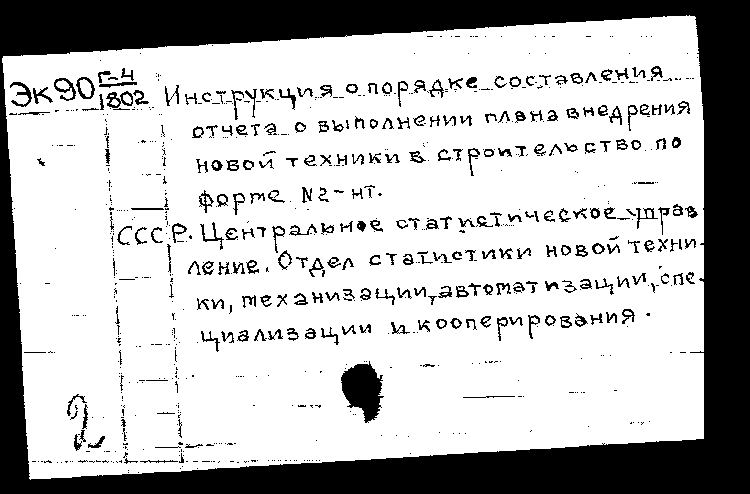 Эк90 Г-4/1802
Инструкция о порядке составления
отчета о выполнении плана внедрения
новой техники в строительство по
форме N2-нт.
СССР. Центральное статистическое управ-
ление. Отдел статистики новой техни-
ки, механизации, автоматизации, спе-
циализации и кооперирования.
2